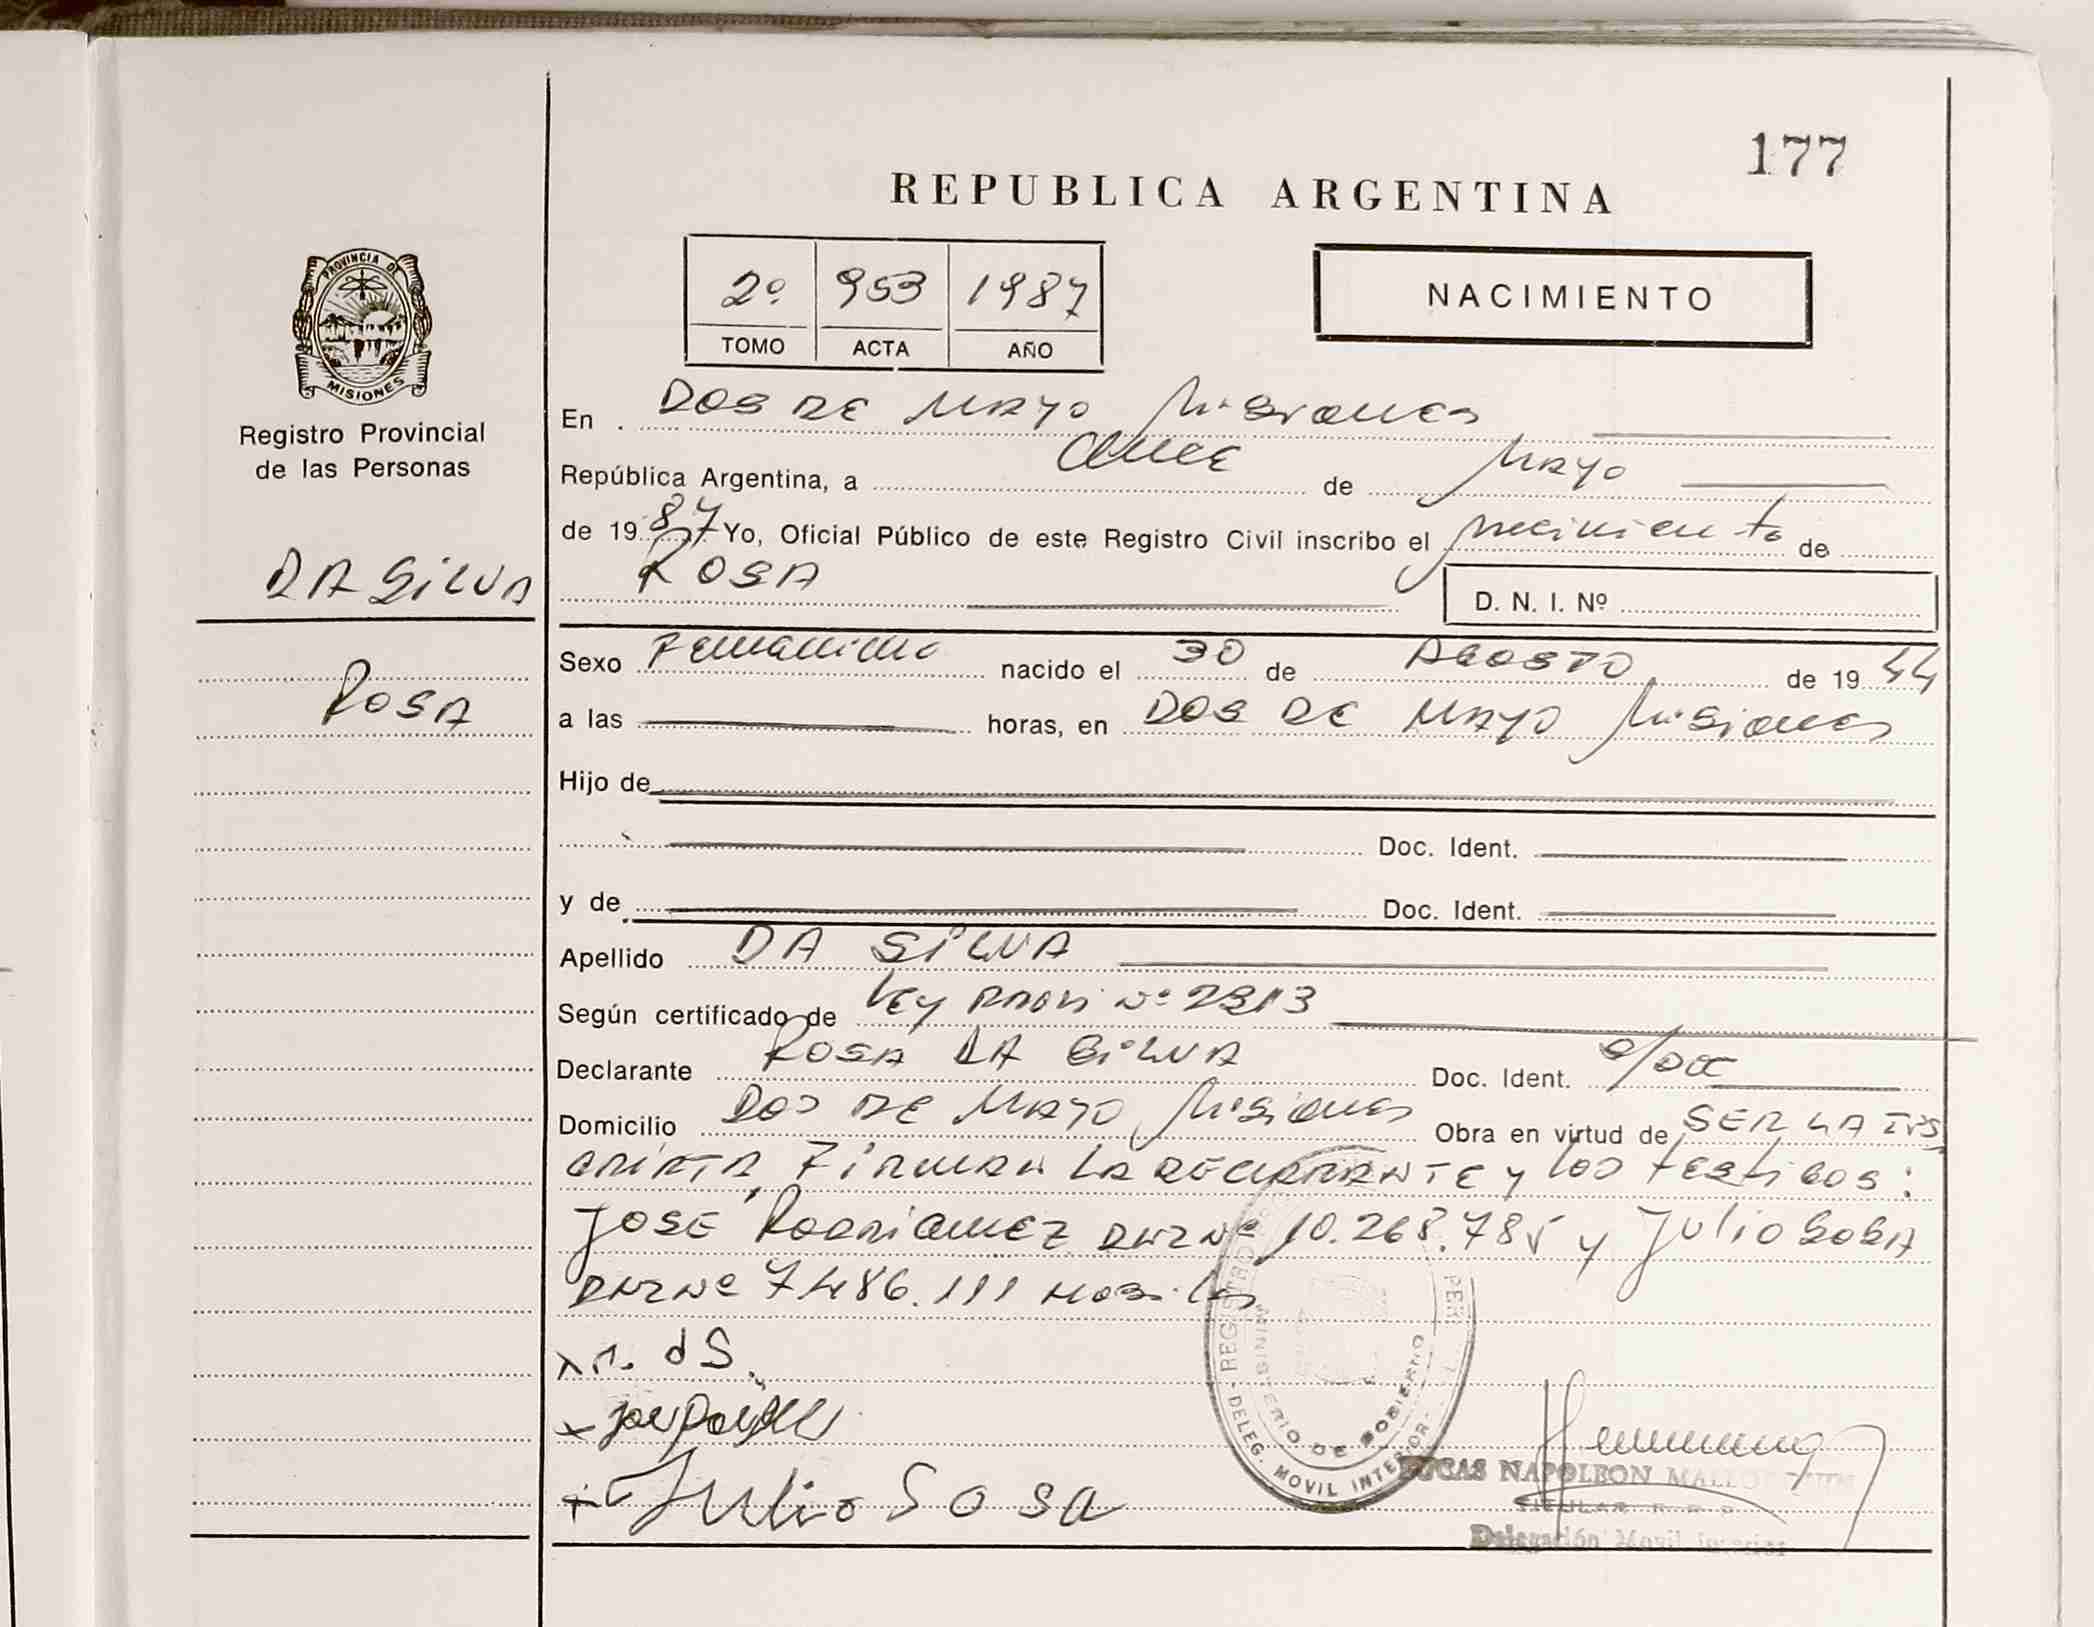 177
REPUBLICA ARGENTINA
2º 953 1987
TOMO ACTA AÑO
NACIMIENTO
PROVINCIA DE
MISIONES
Registro Provincial
de las Personas
DA SILVA
ROSA
En DOS DE MAYO Misiones
República Argentina, a Once de Mayo
de 1987 Yo, Oficial Público de este Registro Civil inscribo el nacimiento de
ROSA D. N. I. Nº
Sexo Femenino nacido el 30 de AGOSTO de 1944
a las horas, en DOS DE MAYO Misiones
Hijo de
Doc. Ident.
y de Doc. Ident.
Apellido DA SILVA
Según certificado de Ley Nº 2913
Declarante ROSA DA SILVA Doc. Ident.
Domicilio DOS DE MAYO Misiones Obra en virtud de SER LA INS
CRIPTA, FIRMAN LA DECLARANTE y los testigos:
JOSE RODRIGUEZ DNI Nº 10.268.785 y Julio SOSA
DNI Nº 7486.111
x r. dS.
x
x Julio Sosa
REGISTRO PER
MINISTERIO DE GOBIERNO
DELEG. MOVIL INTERIOR
LUCAS NAPOLEON
TITULAR
Delegación Movil Interior